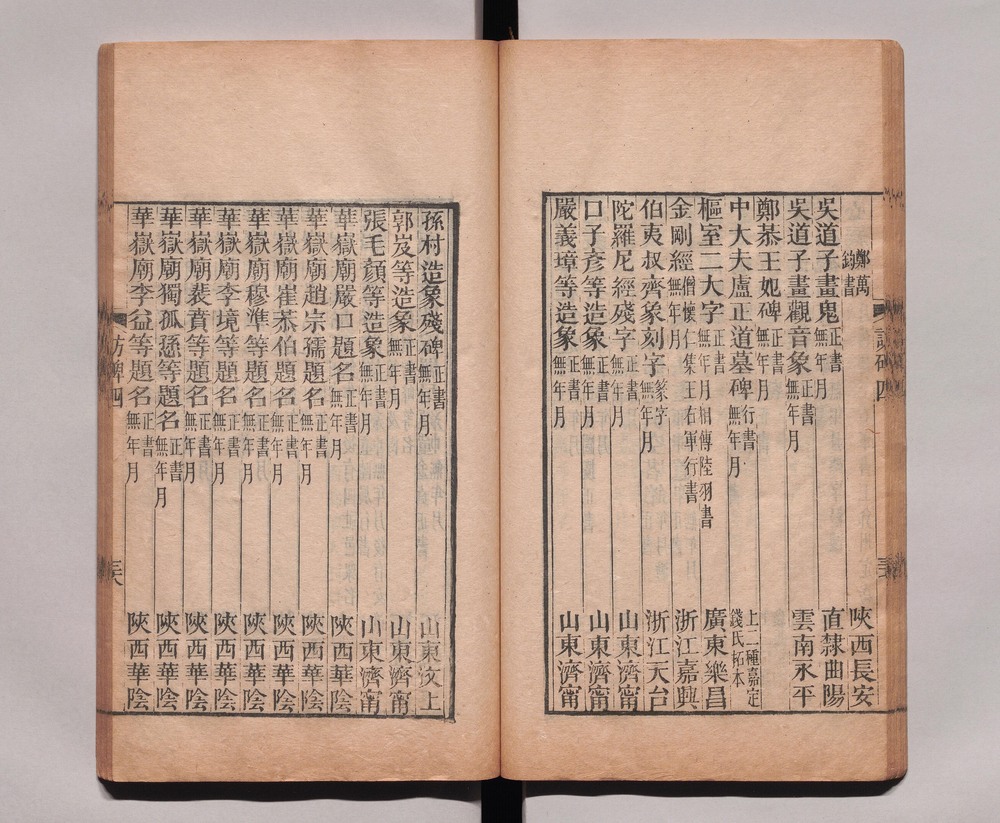 鄭萬鈞書 陝西長安
吳道子畫鬼 正書無年月 直隸曲陽
吳道子畫觀音象 正書無年月 雲南永平
鄭恭王妃碑 正書無年月
中大夫盧正道墓碑 行書無年月 上二種嘉定錢氏拓本
樞室二大字 正書無年月旧傳陸羽書 廣東樂昌
金剛經 僧懷仁集王右軍行書無年月 浙江嘉興
伯夷叔齊象刻字 篆字無年月 浙江天台
陀羅尼經殘字 正書無年月 山東濟甯
口子彥等造象 正書無年月 山東濟甯
嚴義璋等造象 正書無年月 山東濟甯
孫村造象殘碑 正書無年月 山東汶上
郭岌等造象 正書無年月 山東濟甯
張毛顏等造象 正書無年月 山東濟甯
華嶽廟嚴口題名 正書無年月 陝西華陰
華嶽廟趙宗孺題名 正書無年月 陝西華陰
華嶽廟崔恭伯題名 正書無年月 陝西華陰
華嶽廟穆準等題名 正書無年月 陝西華陰
華嶽廟李境等題名 正書無年月 陝西華陰
華嶽廟裴賁等題名 正書無年月 陝西華陰
華嶽廟獨孤愻等題名 正書無年月 陝西華陰
華嶽廟李益等題名 正書無年月 陝西華陰
訪碑四